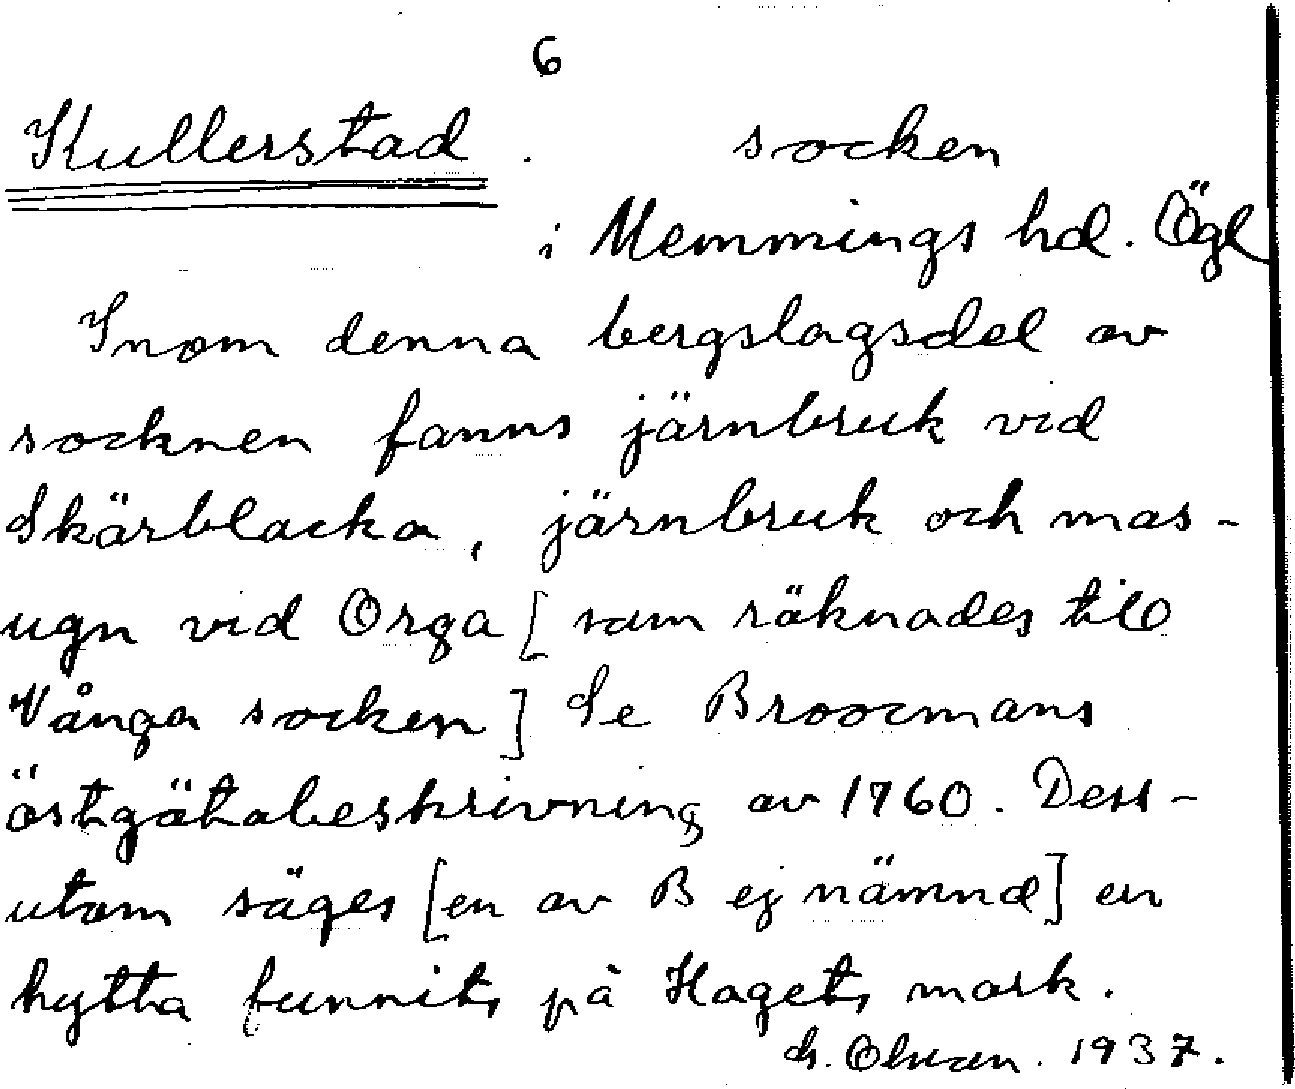 6
Kullerstad. socken
i Memmings hd. Ögl
Inom denna bergslagsdel av
socknen fanns järnbruk vid
Skärblacka, järnbruk och mas-
ugn vid Orga [som räknades till
Vånga socken] Se Broocmans
östgötabeskrivning av 1760. Dess-
utom säges [en av B ej nämnd] en
hytta funnits på Hagets mark.
1937.